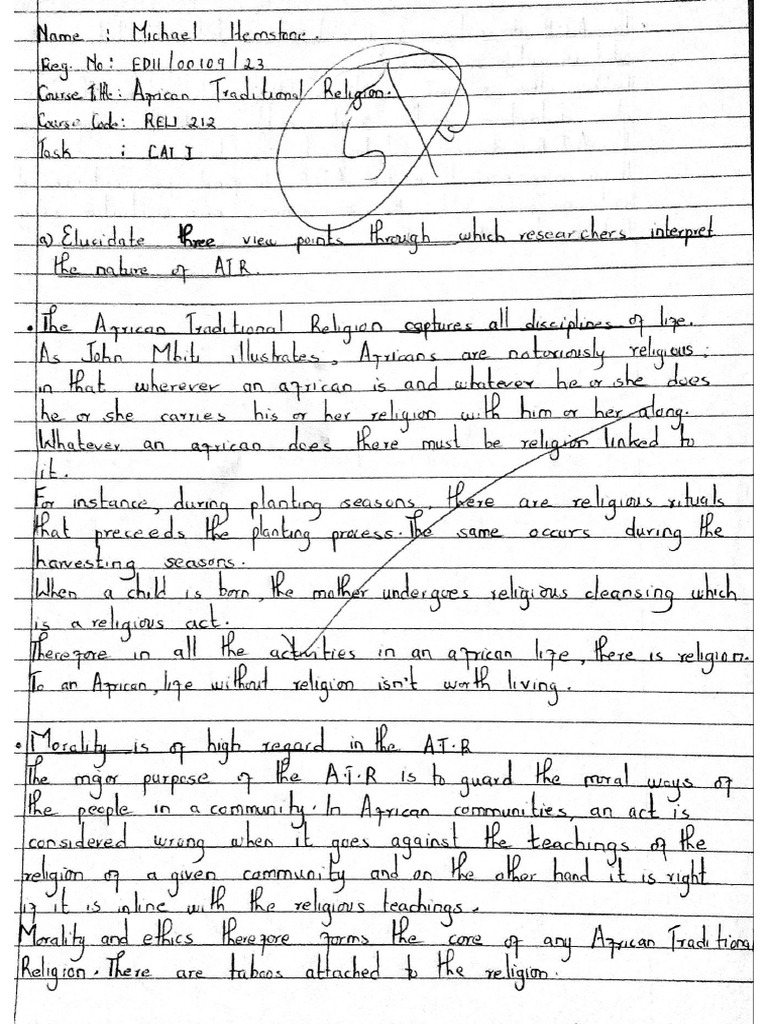 Name : Michael Hemstone.
Reg. No: EDII/00109/23
Course Title: African Traditional Religion.
Course Code: RELI 212
Task : CAT I
a) Elucidate three view points through which researchers interpret
the nature of ATR.
• The African Traditional Religion captures all disciplines of life.
As John Mbiti illustrates, Africans are notoriously religious;
in that wherever an african is and whatever he or she does
he or she carries his or her religion with him or her along.
Whatever an african does there must be religion linked to
it.
For instance, during planting seasons, there are religious rituals
that preceeds the planting process. The same occurs during the
harvesting seasons.
When a child is born, the mother undergoes religious cleansing which
is a religious act.
Therefore in all the activities in an african life, there is religion.
To an African, life without religion isn't worth living.
• Morality is of high regard in the AT.R
The major purpose of the A.T.R is to guard the moral ways of
the people in a community. In African communities, an act is
considered wrong when it goes against the teachings of the
religion of a given community and on the other hand it is right
if it is inline with the religious teachings.
Morality and ethics therefore forms the core of any African Traditiona
Religion. There are taboos attached to the religion.